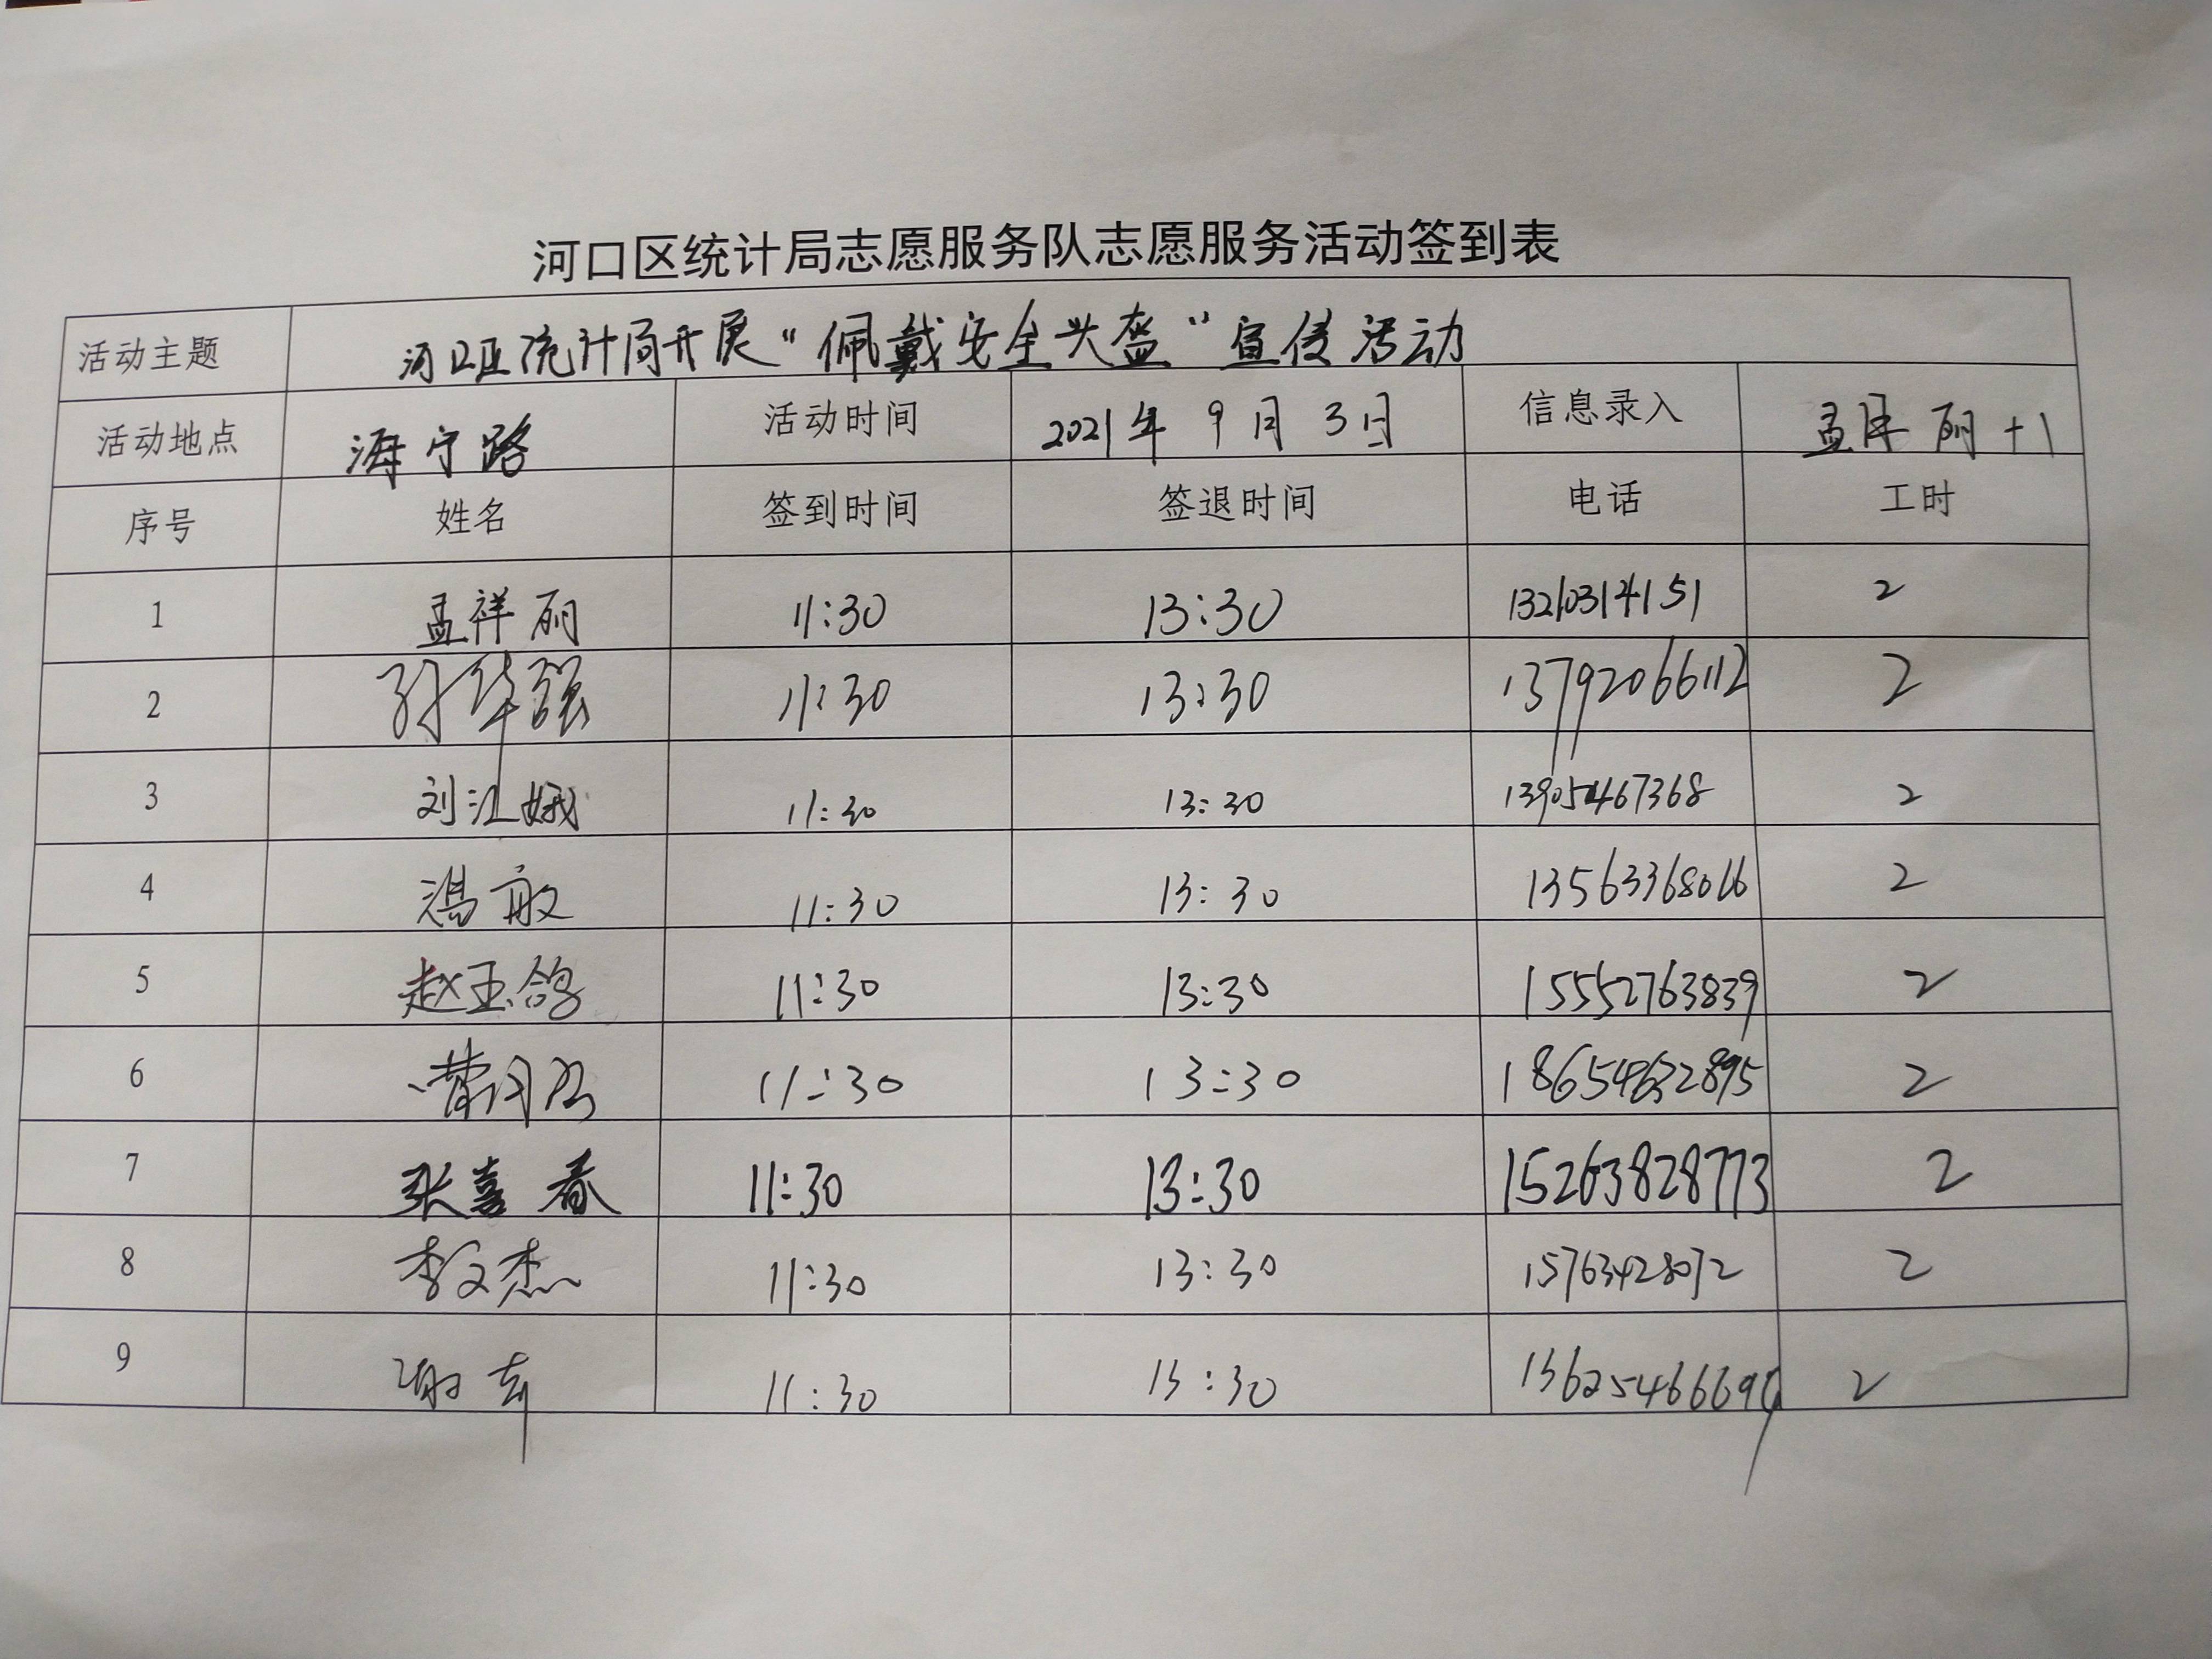 河口区统计局志愿服务队志愿服务活动签到表
活动主题 河口区统计局开展“佩戴安全头盔”宣传活动
活动地点 海宁路 活动时间 2021年 9月 3日 信息录入 孟祥丽 +1
序号 姓名 签到时间 签退时间 电话 工时
1 孟祥丽 11:30 13:30 13210314151 2
2 孙华强 11:30 13:30 13792066112 2
3 刘江娥 11:30 13:30 13905467368 2
4 冯敏 11:30 13:30 2
5 赵玉鸽 11:30 13:30 15552763839 2
6 11:30 13:30 18654632895 2
7 张喜春 11:30 13:30 15263828773 2
8 李文杰 11:30 13:30 15763428072 2
9 11:30 13:30 2